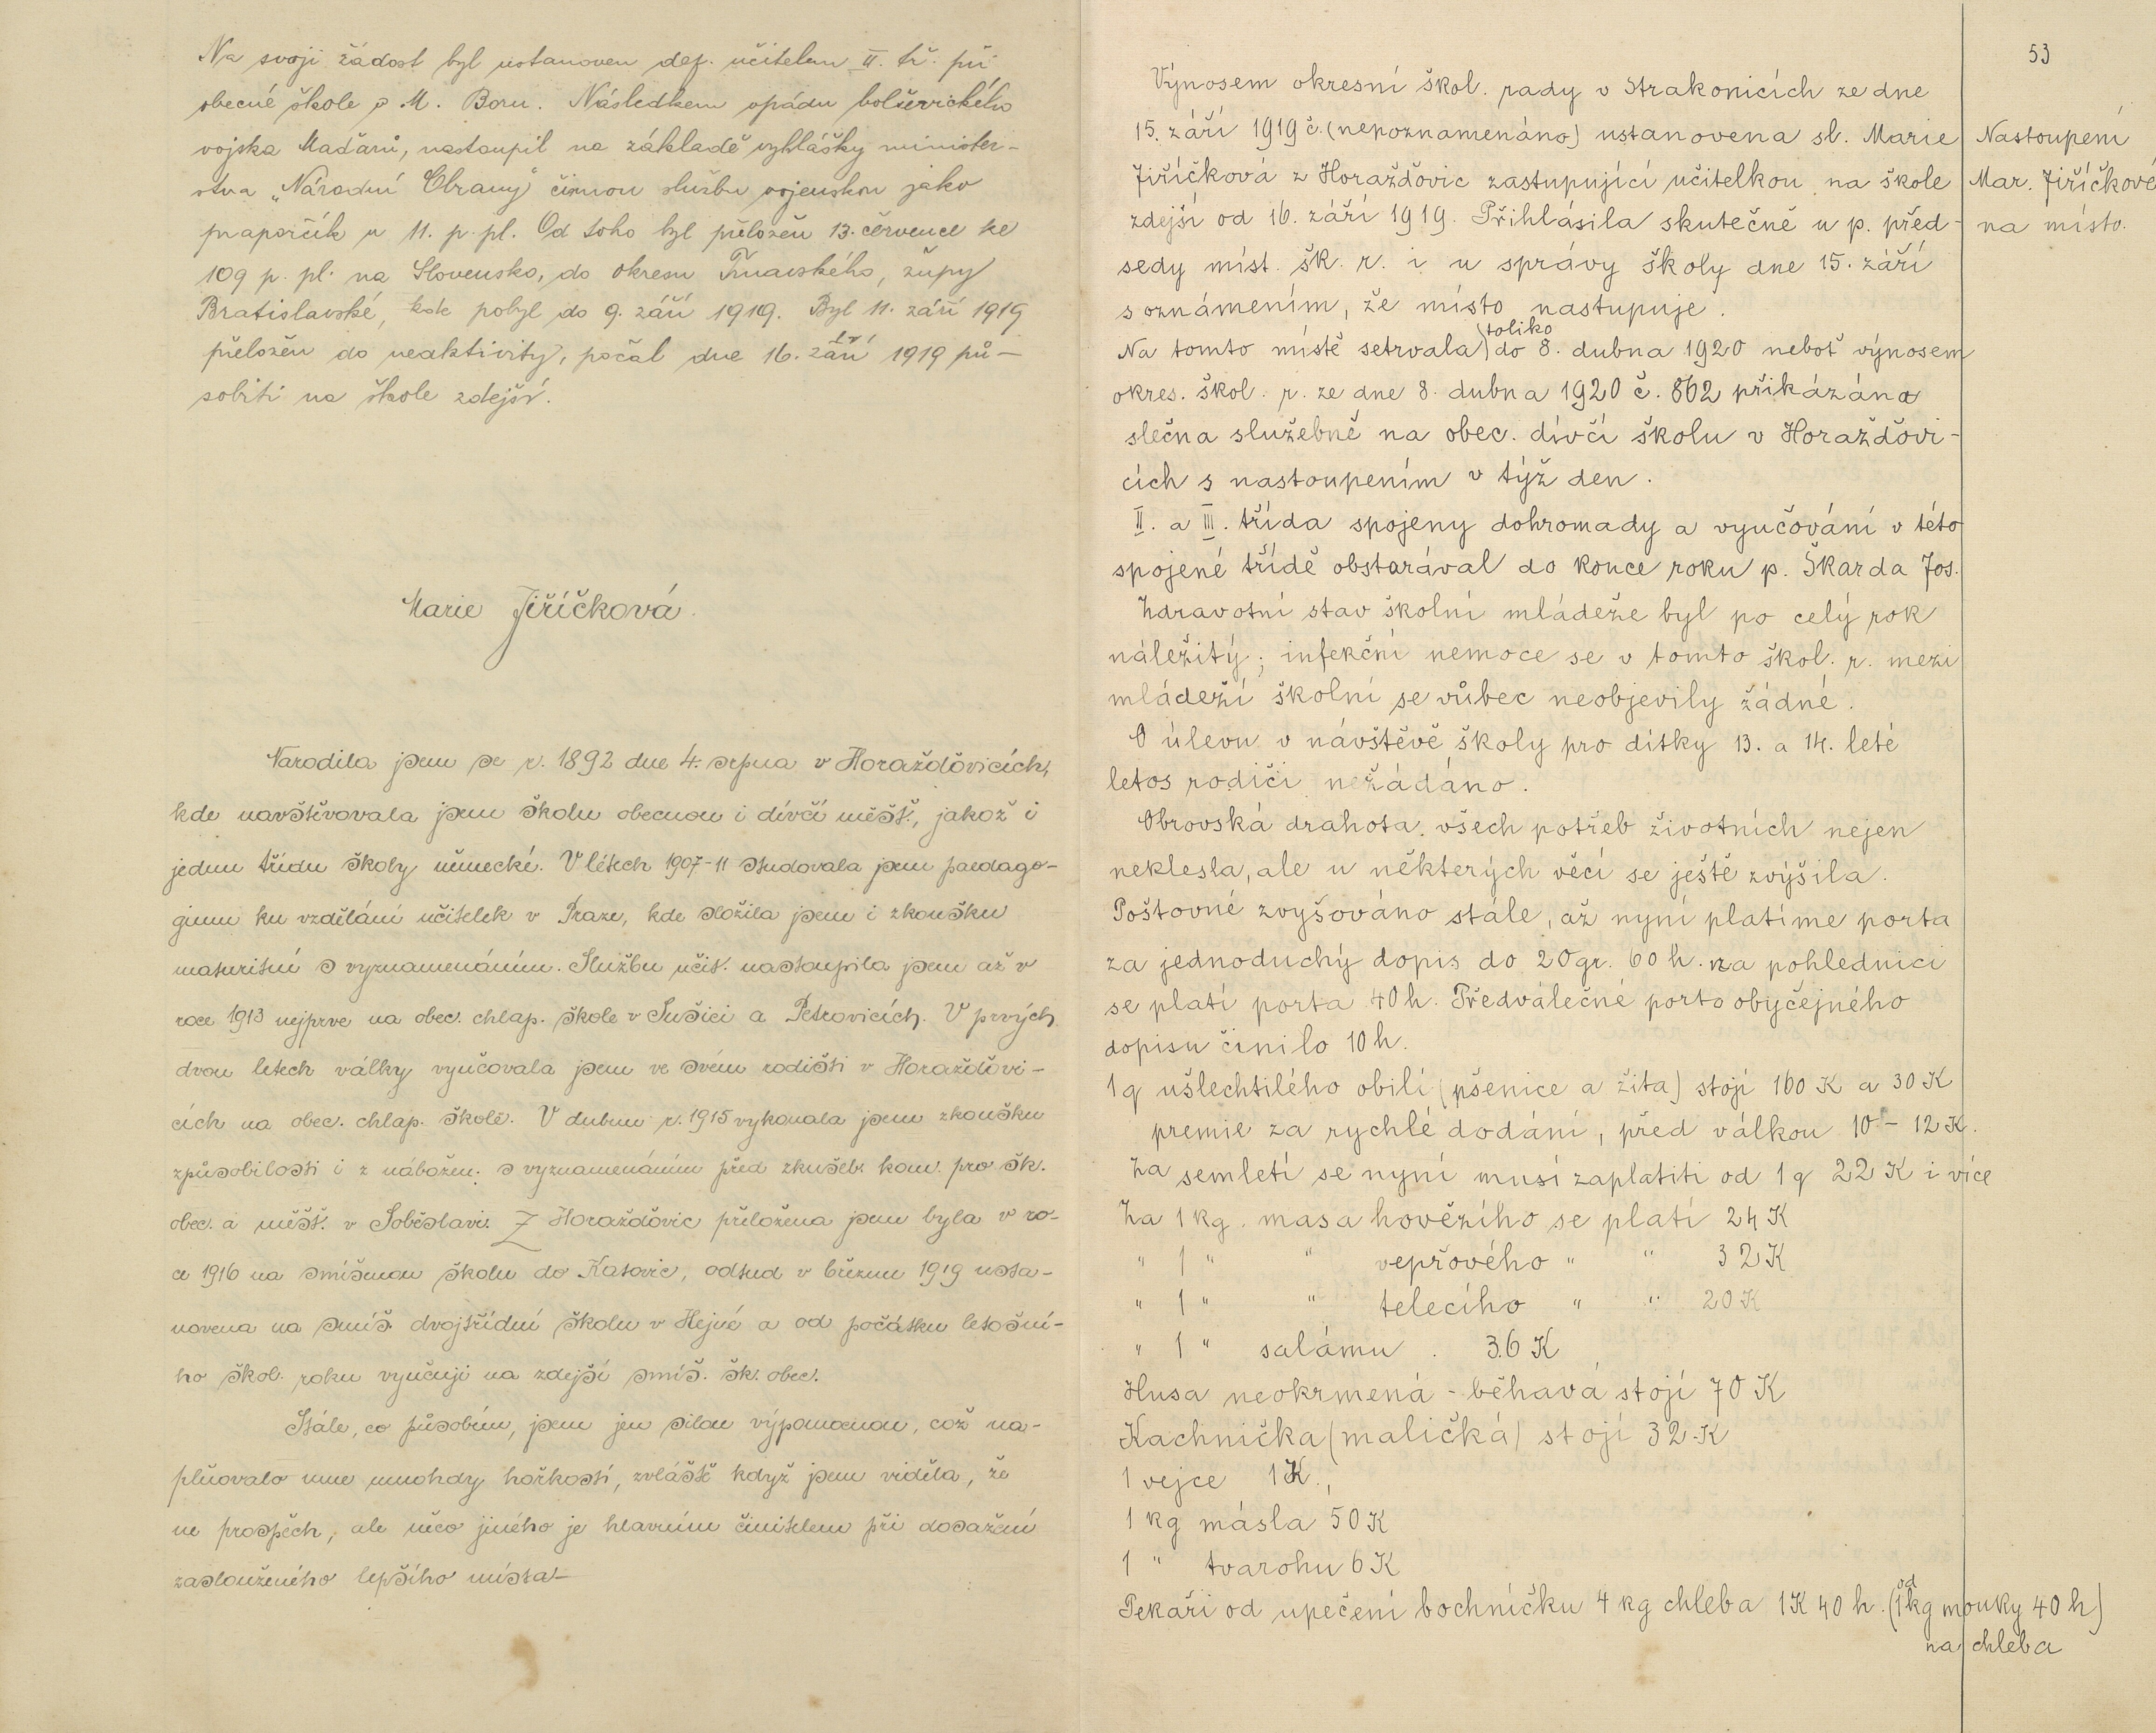 Na svoji žádost byl ustanoven def. učitelem II. tř. při
obecné škole v M. Boru. Následkem vpádu bolševického
vojska Maďarů, nastoupil na základě vyhlášky minister-
stva „Národní Obrany" činnou službu vojenskou jako
praporčík u 11. p. pl. Od toho byl přeložen 13. července ke
109 p. pl. na Slovensko, do okresu Trnavského, župy
Bratislavské, kde pobyl do 9. září 1919. Byl 11. září 1919
přeložen do neaktivity, počal dne 16. září 1919 pů-
sobiti na škole zdejší.
Marie Jiříčková.
Narodila jsem se r. 1892 dne 4. srpna v Horažďovicích,
kde navštěvovala jsem školu obecnou i dívčí měšť., jakož i
jednu třídu školy německé. V létech 1907-11 studovala jsem paedago-
gium ku vzdělání učitelek v Praze, kde složila jsem i zkoušku
maturitní s vyznamenáním. Službu učit. nastoupila jsem až v
roce 1913 nejprve na obec. chlap. škole v Sušici a Petrovicích. V prvých
dvou letech války vyučovala jsem ve svém rodišti v Horažďovi-
cích na obec. chlap. škole. V dubnu r. 1915 vykonala jsem zkoušku
způsobilosti i z nábožen. s vyznamenáním před zkušeb. kom. pro šk.
obec. a měšť. v Soběslavi. Z Horažďovic přeložena jsem byla v ro-
ce 1916 na smíšenou školu do Katovic, odtud v březnu 1919 usta-
novena na smíš. dvojtřídní školu v Hejné a od počátku letošní-
ho škol. roku vyučuji na zdejší smíš. šk. obec.
Stále, co působím, jsem jen silou výpomocnou, což na-
plňovalo mne mnohdy hořkostí, zvláště když jsem viděla, že
ne prospěch, ale něco jiného je hlavním činitelem při dosažení
zaslouženého lepšího místa.
53
Výnosem okresní škol. rady v Strakonicích ze dne
15. září 1919 č. (nepoznamenáno) ustanovena sl. Marie
Jiříčková z Horažďovic zastupující učitelkou na škole
zdejší od 16. září 1919. Přihlásila skutečně u p. před-
sedy míst. šk. r. i u správy školy dne 15. září
s oznámením, že místo nastupuje.
Nastoupení
Mar. Jiříčkové
na místo.
toliko
Na tomto místě setrvala do 8. dubna 1920 neboť výnosem
okres. škol. r. ze dne 8. dubna 1920 č. 862 přikázána
slečna služebně na obec. dívčí školu v Horažďovi-
cích s nastoupením v týž den.
II. a III. třída spojeny dohromady a vyučování v této
spojené třídě obstarával do konce roku p. Škarda Jos.
Zdravotní stav školní mládeže byl po celý rok
náležitý; infekční nemoce se v tomto škol. r. mezi
mládeží školní se vůbec neobjevily žádné.
O úlevu v návštěvě školy pro dítky 13. a 14. leté
letos rodiči nežádáno.
Obrovská drahota všech potřeb životních nejen
neklesla, ale u některých věcí se ještě zvýšila.
Poštovné zvyšováno stále, až nyní platíme porta
za jednoduchý dopis do 20gr. 60 h. za pohlednici
se platí porta 40 h. Předválečné porto obyčejného
dopisu činilo 10 h.
1 q ušlechtilého obilí (pšenice a žita) stojí 160 K a 30 K
premie za rychlé dodání, před válkou 10 - 12 K.
Za semletí se nyní musí zaplatiti od 1 q 22 K i více
Za 1 kg. masa hovězího se platí 24 K
" 1 " " vepřového " " 32 K
" 1 " " telecího " " 20 K
" 1 " salámu . 36 K
Husa neokrmená - běhavá stojí 70 K
Kachnička (maličká) stojí 32 K
1 vejce 1 K.,
1 kg másla 50 K
1 " tvarohu 6 K
Pekaři od upečení bochníčku 4 kg chleba 1 K 40 h. (od 1 kg mouky 40 h)
na chleba